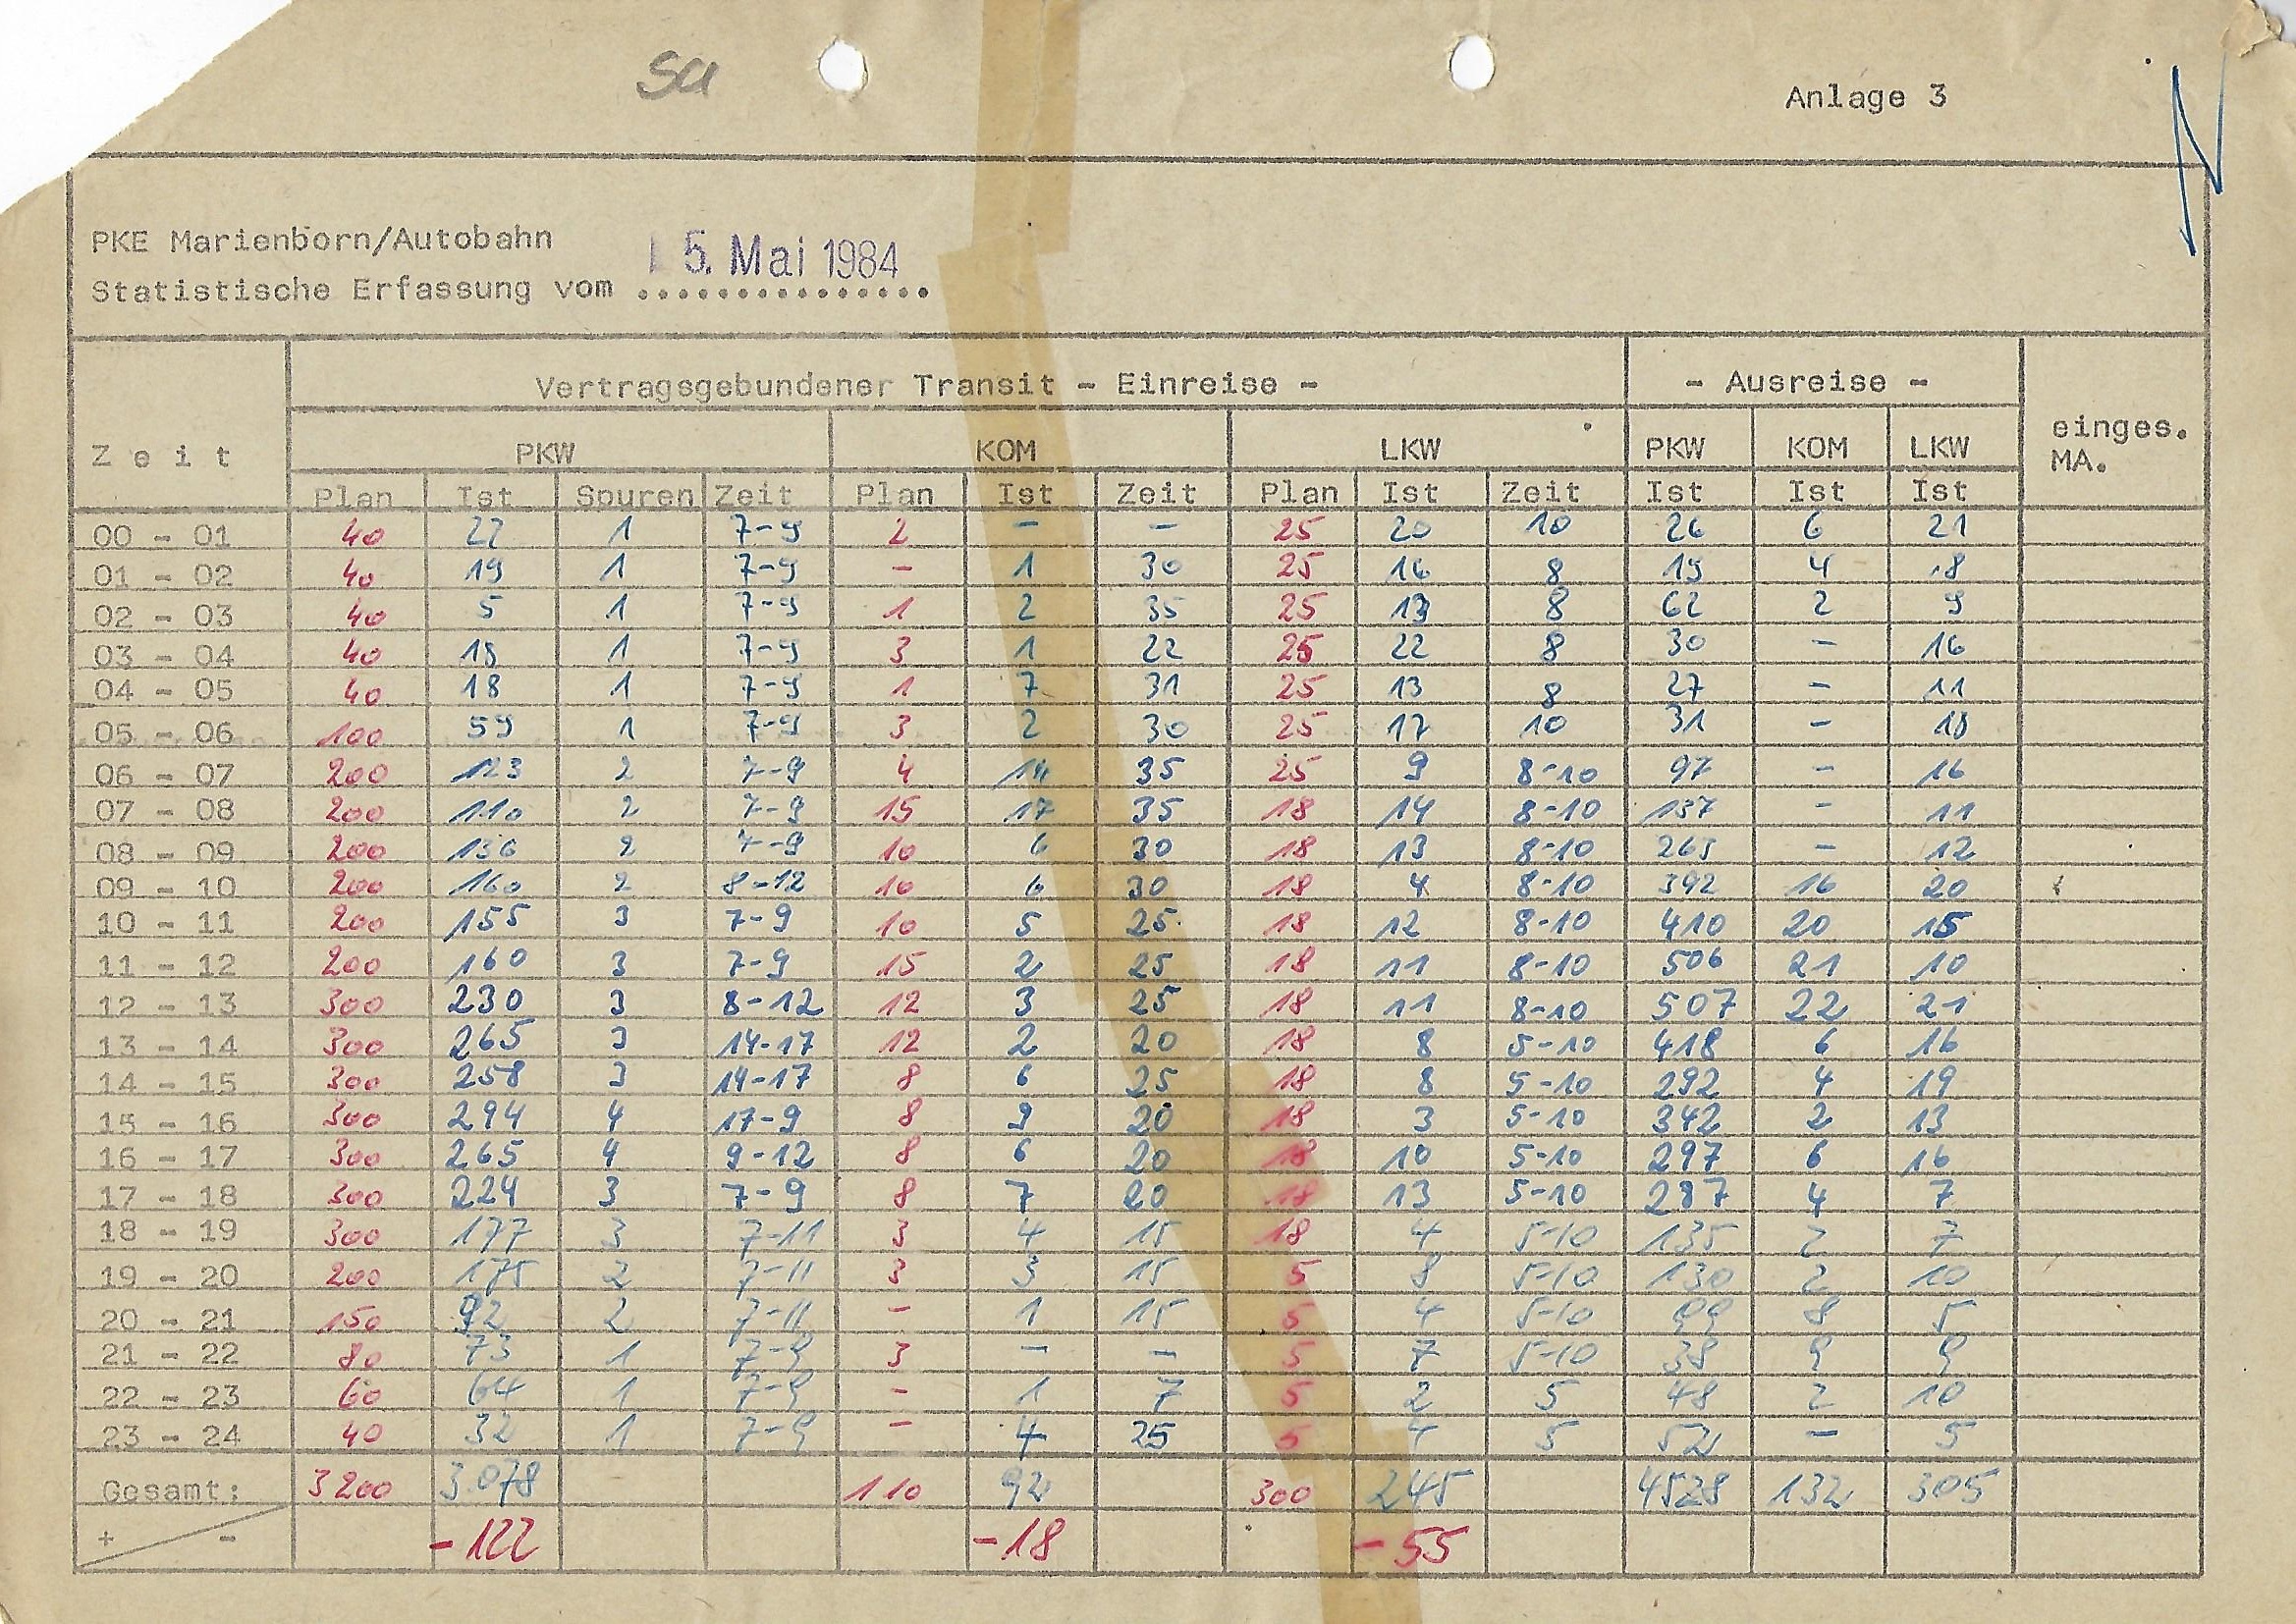 Sa
Anlage 3
PKE Marienborn/Autobahn
5. Mai 1984
Statistische Erfassung vom ...............
Vertragsgebundener Transit - Einreise - - Ausreise -
Zeit PKW KOM LKW PKW KOM LKW einges. MA.
Plan Ist Spuren Zeit Plan Ist Zeit Plan Ist Zeit Ist Ist Ist
00 - 01 40 22 1 7-9 2 - - 25 20 10 26 6 21
01 - 02 40 19 1 7-9 - 1 30 25 16 8 19 4 18
02 - 03 40 5 1 7-9 1 2 35 25 13 8 62 2 9
03 - 04 40 18 1 7-9 3 1 22 25 22 8 30 - 16
04 - 05 40 18 1 7-9 1 7 31 25 13 8 27 - 11
05 - 06 100 59 1 7-9 3 2 30 25 17 10 31 - 18
06 - 07 200 123 2 7-9 4 14 35 25 9 8-10 97 - 16
07 - 08 200 110 2 7-9 15 17 35 18 14 8-10 137 - 11
08 - 09 200 136 2 7-9 10 6 30 18 13 8-10 265 - 12
09 - 10 200 160 2 8-12 10 6 30 18 4 8-10 392 16 20
10 - 11 200 155 3 7-9 10 5 25 18 12 8-10 410 20 15
11 - 12 200 160 3 7-9 15 2 25 18 11 8-10 506 21 10
12 - 13 300 230 3 8-12 12 3 25 18 11 8-10 507 22 21
13 - 14 300 265 3 14-17 12 2 20 18 8 5-10 418 6 16
14 - 15 300 258 3 14-17 8 6 25 18 8 5-10 292 4 19
15 - 16 300 294 4 17-9 8 9 20 18 3 5-10 342 2 13
16 - 17 300 265 4 9-12 8 6 20 18 10 5-10 297 6 16
17 - 18 300 224 3 7-9 8 7 20 18 13 5-10 287 4 7
18 - 19 300 177 3 7-11 3 4 15 18 4 5-10 135 2 7
19 - 20 200 175 2 7-11 3 3 15 5 8 5-10 130 2 10
20 - 21 150 92 2 7-11 - 1 15 5 4 5-10 99 8 5
21 - 22 80 73 1 7-9 3 - - 5 7 5-10 38 9 9
22 - 23 60 64 1 7-9 - 1 7 5 2 5 48 2 10
23 - 24 40 32 1 7-9 - 4 25 5 4 5 52 - 5
Gesamt: 3200 3.078 110 92 300 245 4528 132 305
+ - -122 -18 -55